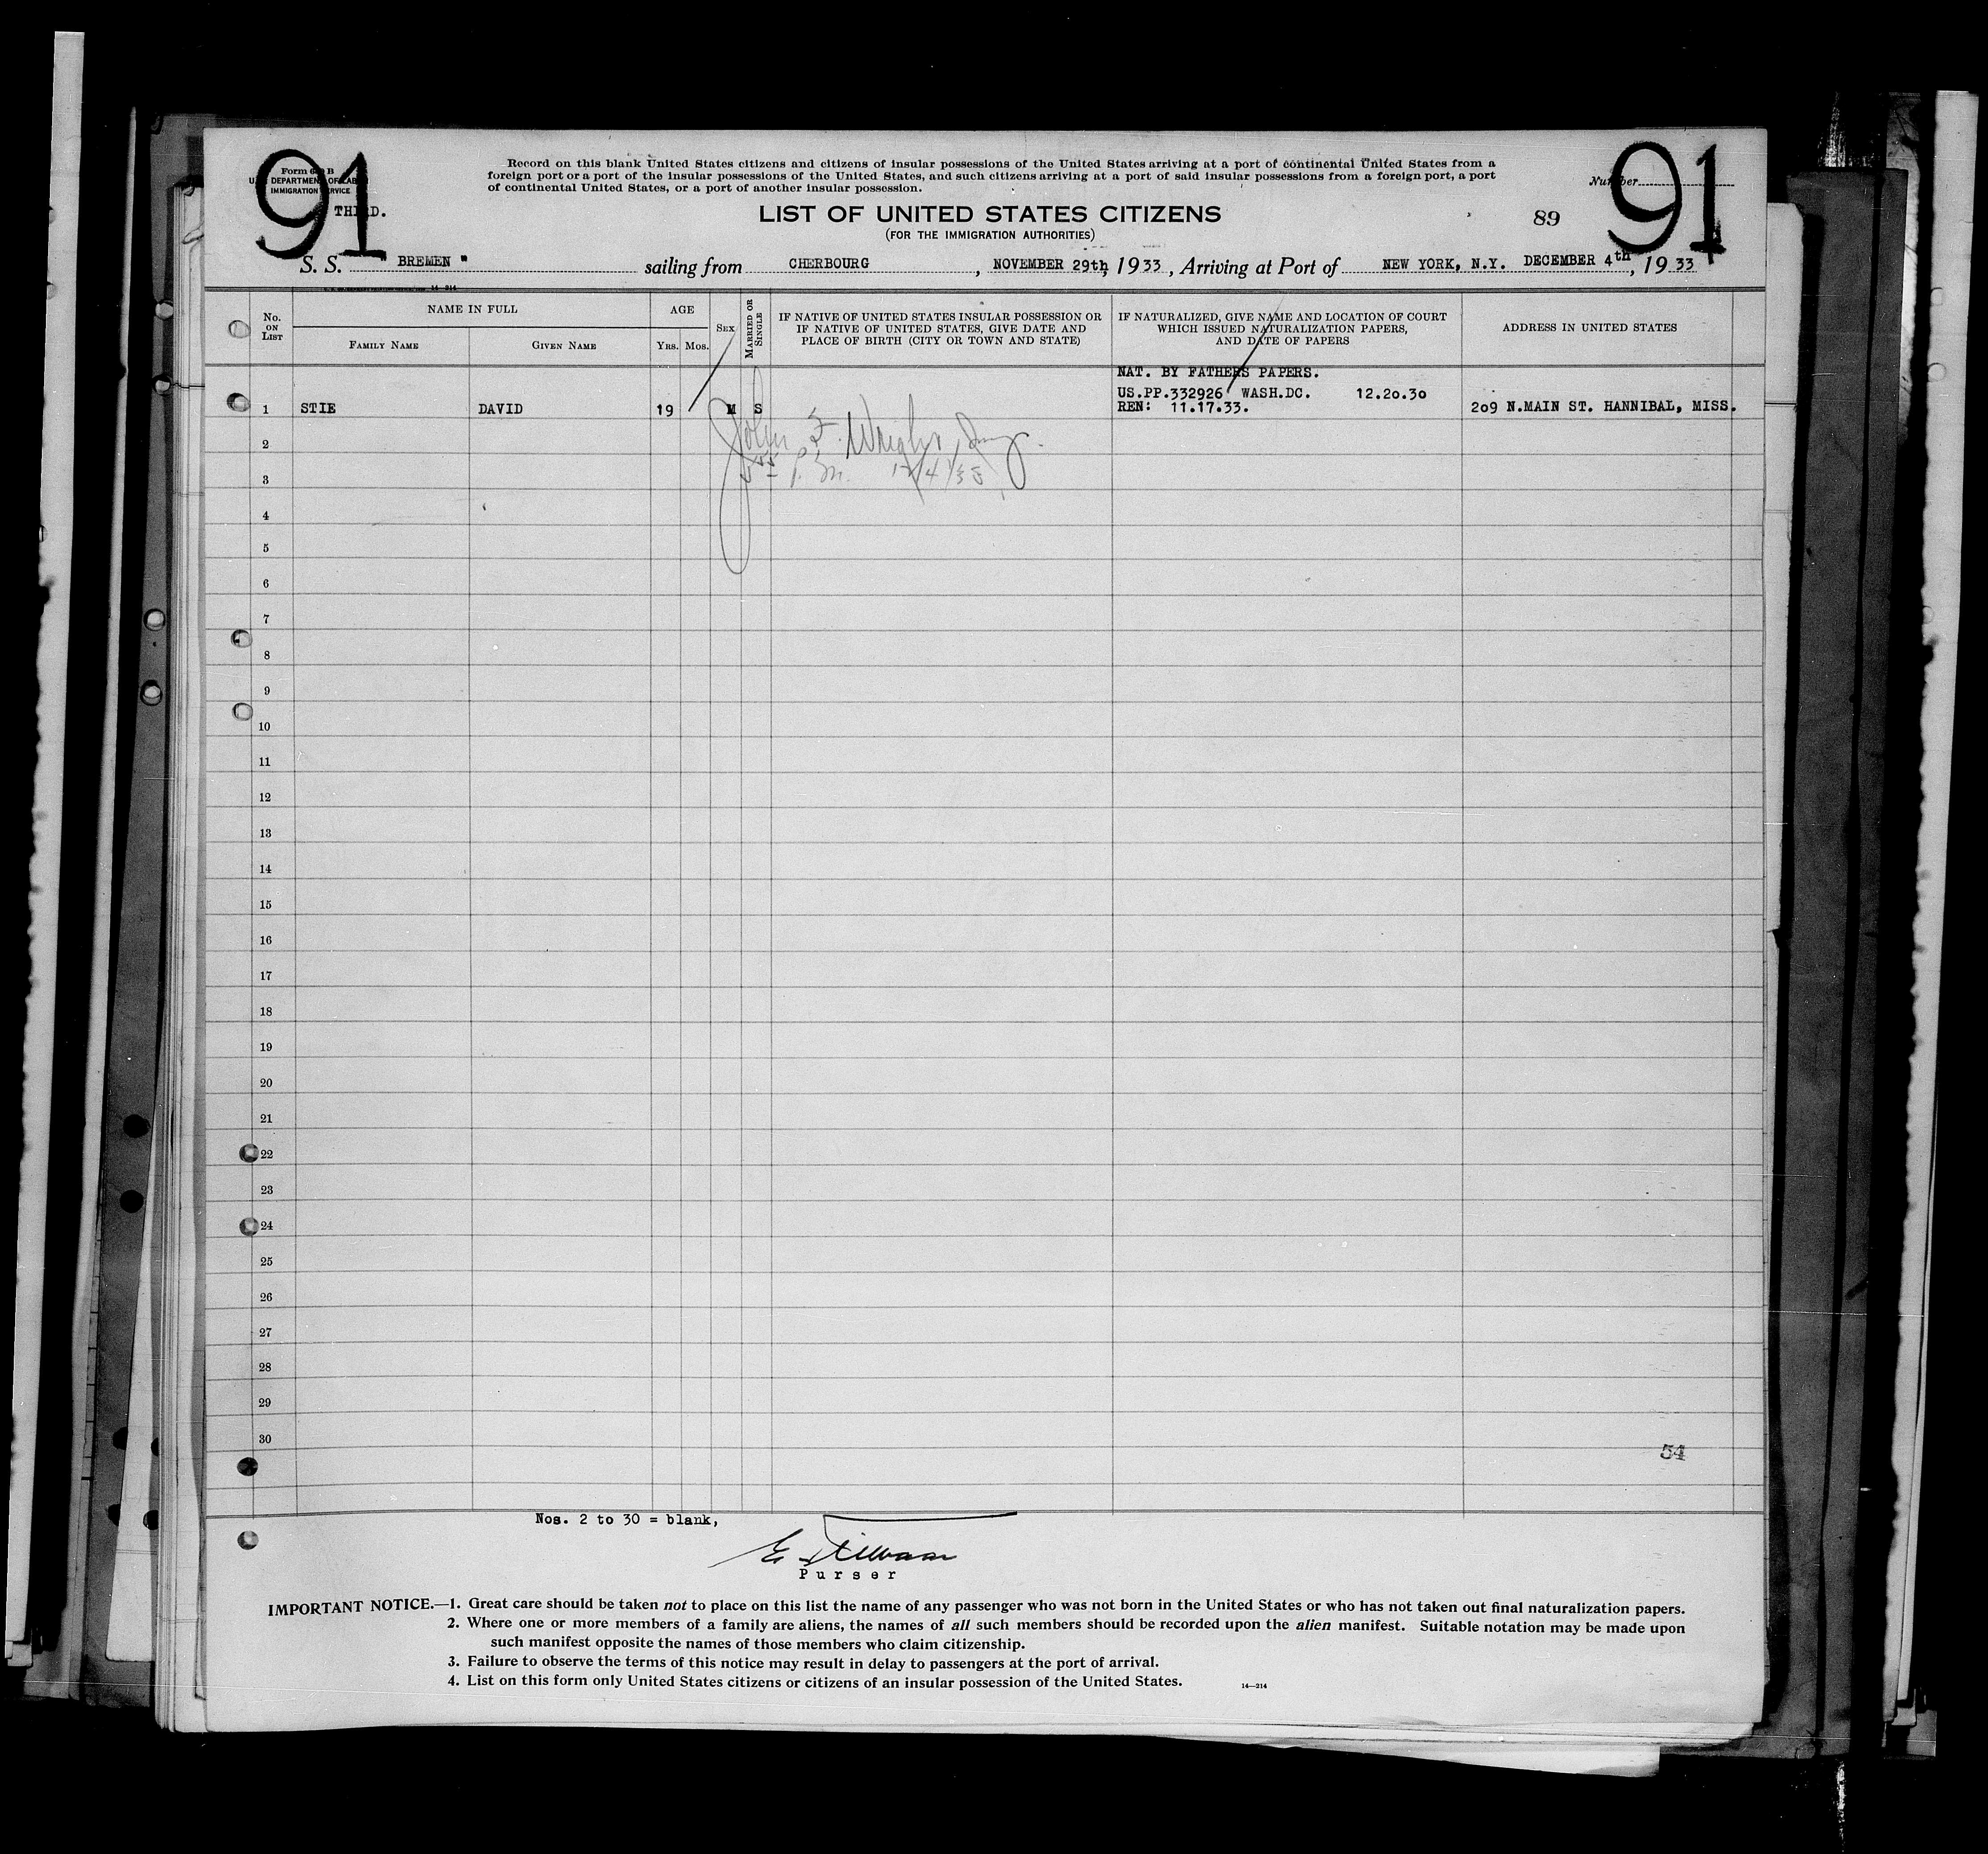 91
91
Form 630 B
U. S. DEPARTMENT OF LABOR
IMMIGRATION SERVICE
THIRD.
Record on this blank United States citizens and citizens of insular possessions of the United States arriving at a port of continental United States from a
foreign port or a port of the insular possessions of the United States, and such citizens arriving at a port of said insular possessions from a foreign port, a port
of continental United States, or a port of another insular possession.
Number
LIST OF UNITED STATES CITIZENS
89
(FOR THE IMMIGRATION AUTHORITIES)
S. S. " BREMEN " sailing from CHERBOURG, NOVEMBER 29th, 1933, Arriving at Port of NEW YORK, N.Y. DECEMBER 4th, 1933
No. ON LIST
NAME IN FULL
FAMILY NAME
GIVEN NAME
AGE
YRS. MOS.
SEX
MARRIED OR SINGLE
IF NATIVE OF UNITED STATES INSULAR POSSESSION OR
IF NATIVE OF UNITED STATES, GIVE DATE AND
PLACE OF BIRTH (CITY OR TOWN AND STATE)
IF NATURALIZED, GIVE NAME AND LOCATION OF COURT
WHICH ISSUED NATURALIZATION PAPERS,
AND DATE OF PAPERS
ADDRESS IN UNITED STATES
NAT. BY FATHERS PAPERS.
US.PP.332926 WASH.DC. 12.20.30
1 STIE DAVID 19 M S REN: 11.17.33. 209 N.MAIN ST. HANNIBAL, MISS.
2
John F. Wright
3
P.M. 12/4/33
4
5
6
7
8
9
10
11
12
13
14
15
16
17
18
19
20
21
22
23
24
25
26
27
28
29
30
54
Nos. 2 to 30 = blank,
Purser
IMPORTANT NOTICE.—1. Great care should be taken not to place on this list the name of any passenger who was not born in the United States or who has not taken out final naturalization papers.
2. Where one or more members of a family are aliens, the names of all such members should be recorded upon the alien manifest. Suitable notation may be made upon
such manifest opposite the names of those members who claim citizenship.
3. Failure to observe the terms of this notice may result in delay to passengers at the port of arrival.
4. List on this form only United States citizens or citizens of an insular possession of the United States.
14—214